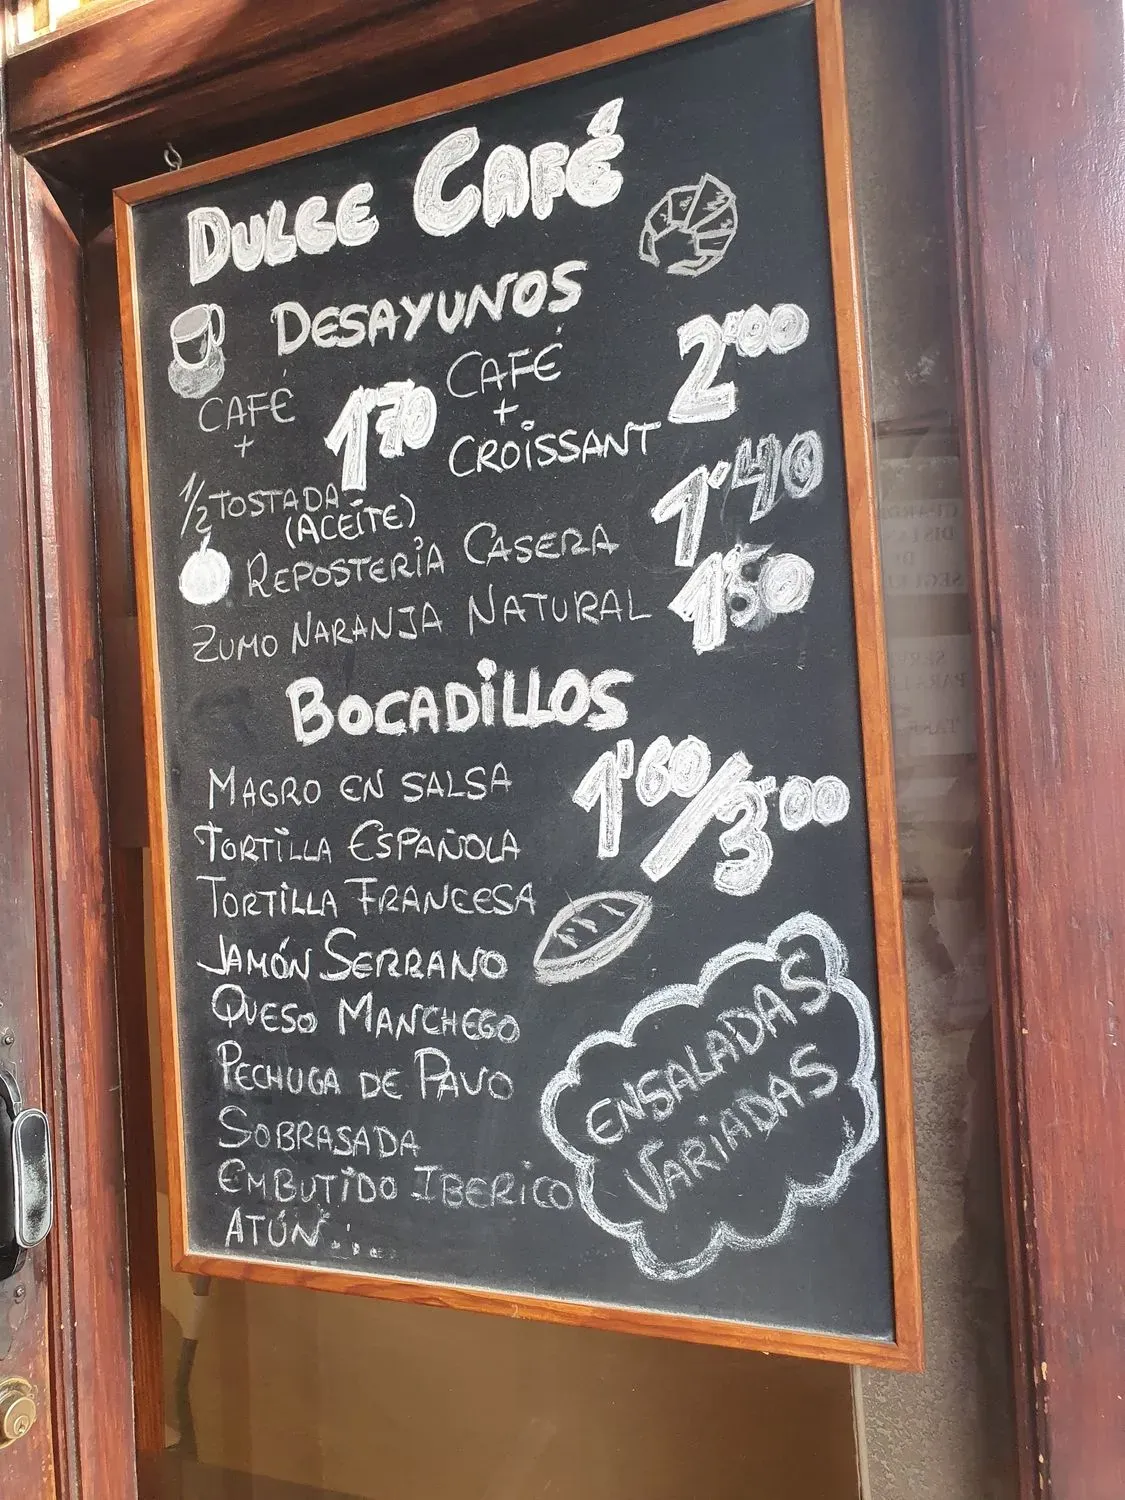 DULCE CAFÉ
DESAYUNOS
CAFÉ
+
1/2 TOSTADA
(ACEITE)
1'70
CAFÉ
+
CROISSANT
2'00
REPOSTERÍA CASERA 1'40
ZUMO NARANJA NATURAL 1'50
BOCADILLOS
1'60/3'00
MAGRO EN SALSA
TORTILLA ESPAÑOLA
TORTILLA FRANCESA
JAMÓN SERRANO
QUESO MANCHEGO
PECHUGA DE PAVO
SOBRASADA
EMBUTIDO IBERICO
ATÚN...
ENSALADAS
VARIADAS